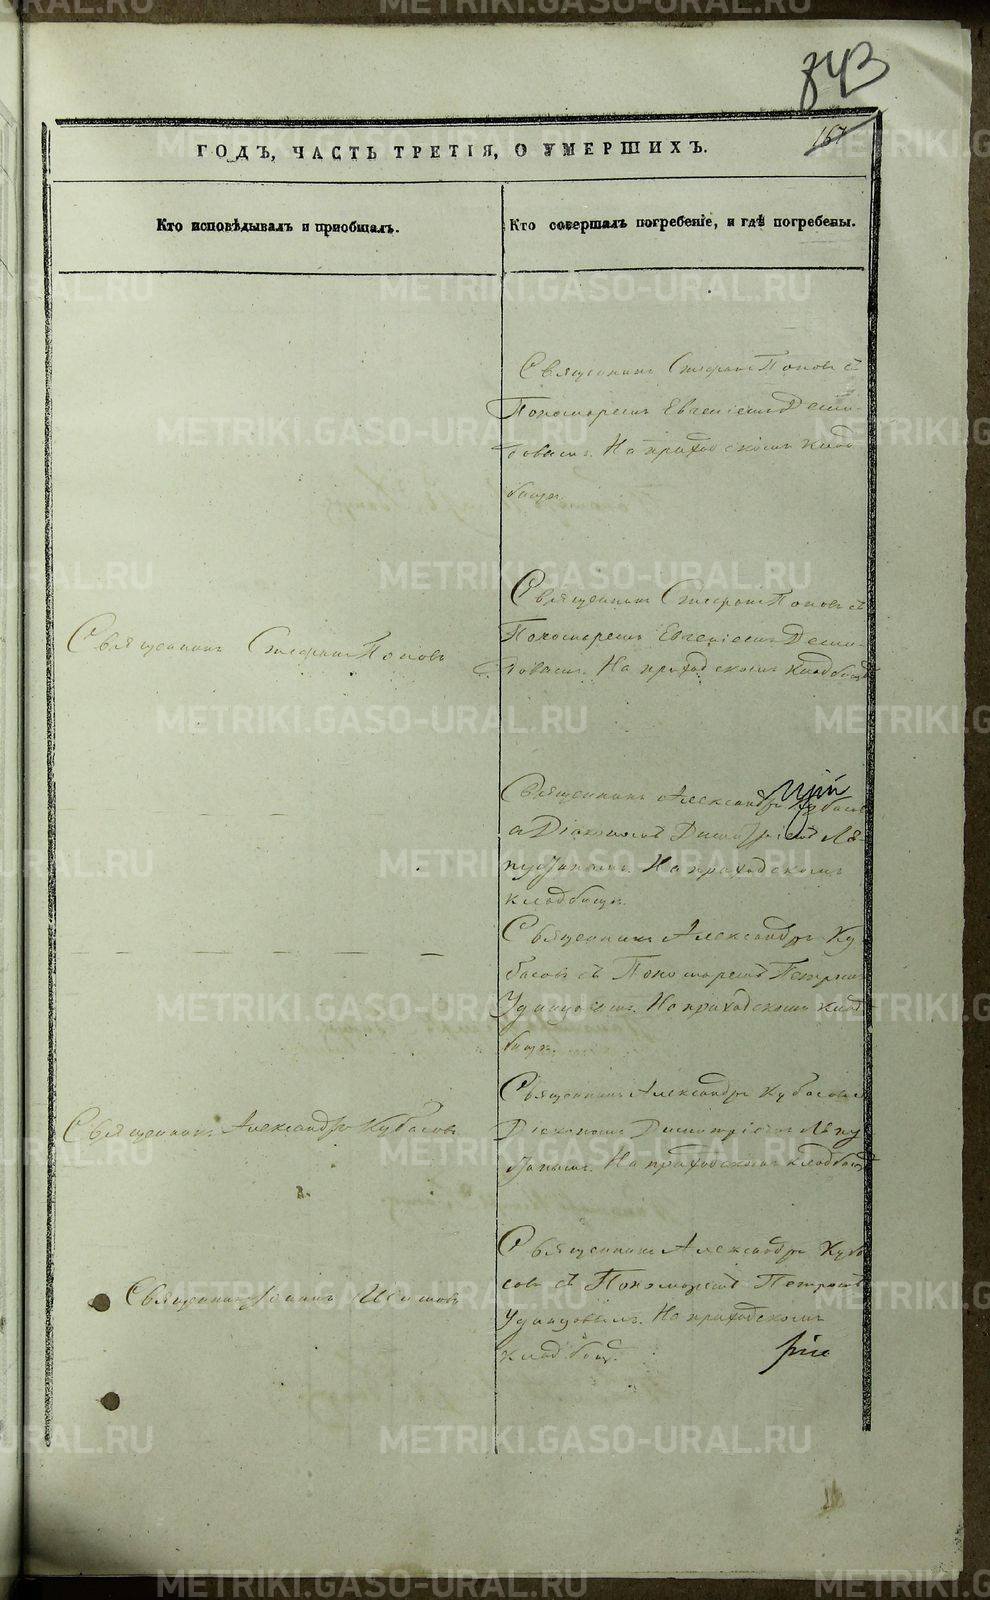 843
167
ГОДЪ, ЧАСТЬ ТРЕТІЯ, О УМЕРШИХЪ.
Кто исповѣдывалъ и пріобщалъ.
Кто совершалъ погребеніе, и гдѣ погребены.
Священникъ Стефанъ Поповъ съ
Пономаремъ Евгеніемъ
На приходскомъ клад-
бищѣ.
Священникъ Стефанъ Поповъ
Священникъ Стефанъ Поповъ съ
Пономаремъ Евгеніемъ
На приходскомъ кладбищѣ
Священникъ Александръ Кубасовъ
съ Діакономъ Димитріемъ Ля-
пустинымъ. На приходскомъ
кладбищѣ.
Священникъ Александръ Ку-
басовъ съ Пономаремъ Петромъ
Удинцовымъ. На приходскомъ клад-
бищѣ.
Священникъ Александръ Кубасовъ
Священникъ Александръ Кубасовъ съ
Діакономъ Димитріемъ Ляпу
На приходскомъ кладбищѣ
Священникъ Іоаннъ
Священникъ Александръ Куба
совъ съ Пономаремъ Петромъ
Удинцовымъ. На приходскомъ
кладбищѣ.
METRIKI.GASO-URAL.RU